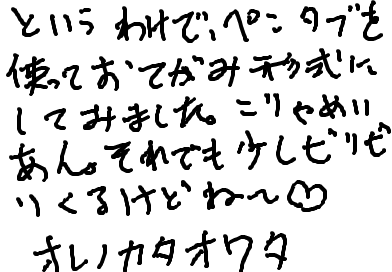 というわけで、ペンタブを
使っておてがみ形式に
してみました。こりゃめい
あん。それでも少しビリビ
リくるけどね〜♡
オレノカタオワタ